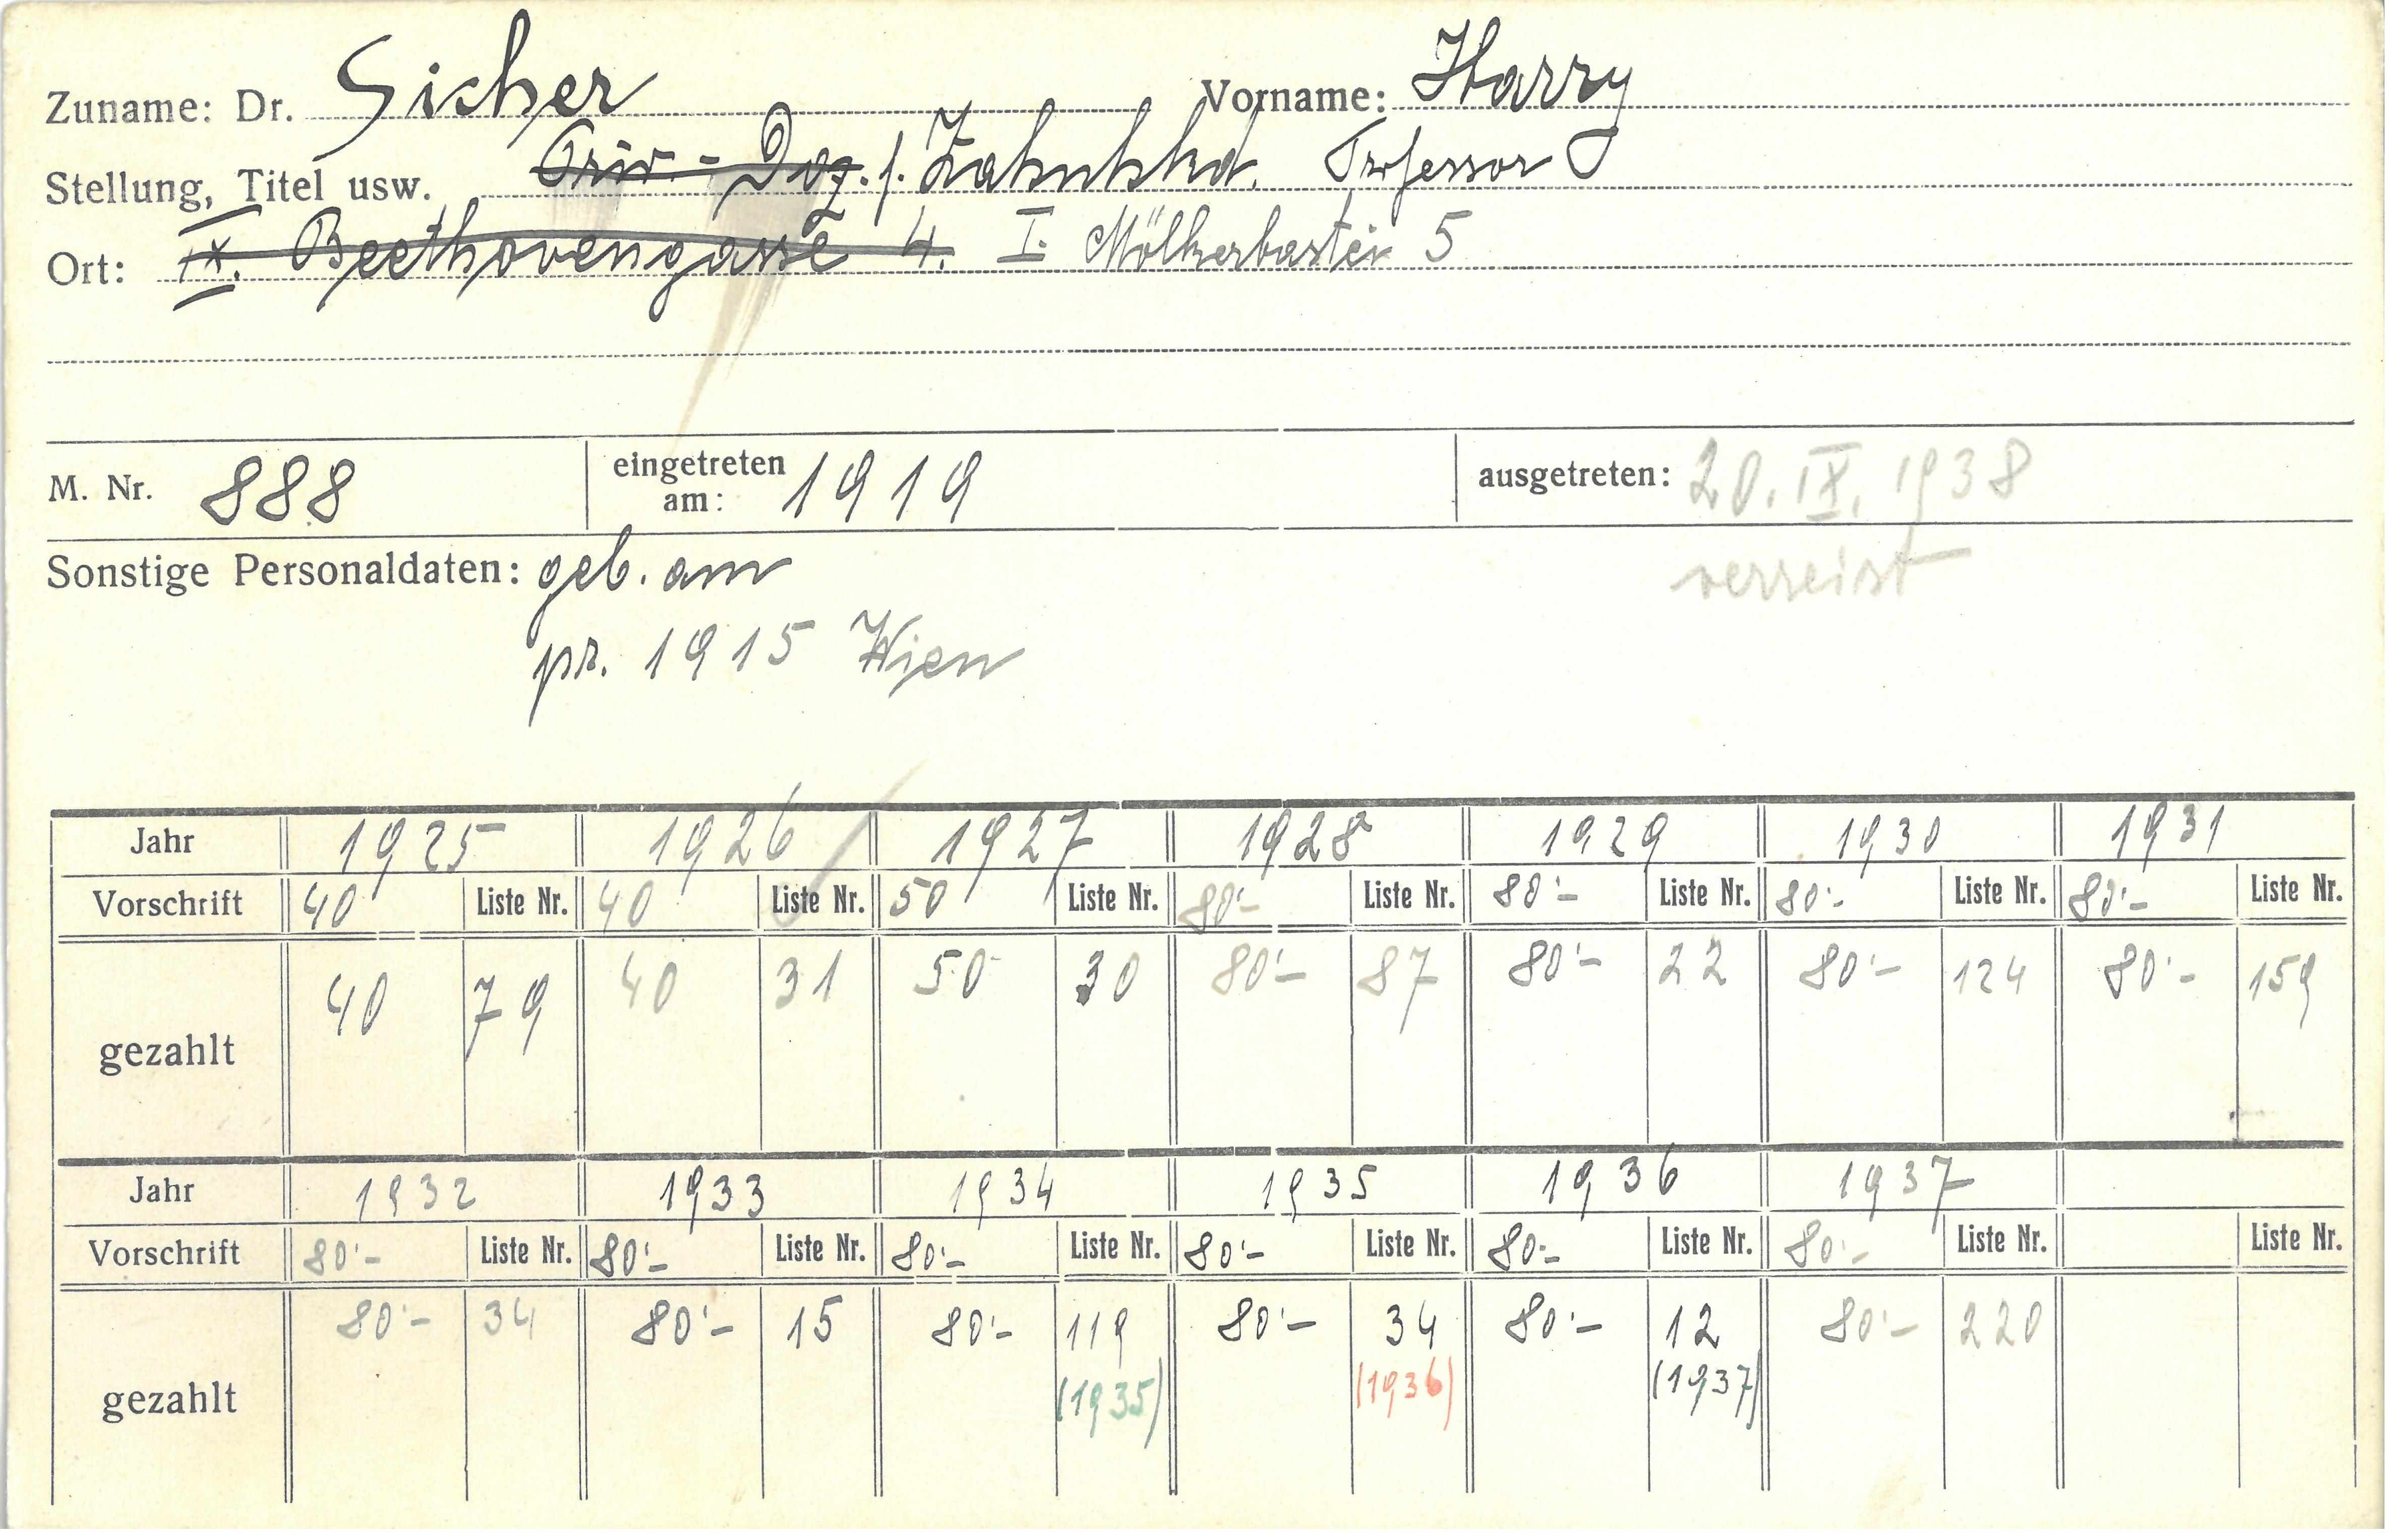 Zuname: Dr. Sicher Vorname: Harry
Stellung, Titel usw. Priv.-Doz. f. Zahnhkd. Professor
Ort: IX. Beethovengasse 4. I. Mölkerbastei 5
M. Nr. 888 eingetreten am: 1919 ausgetreten: 20. IX. 1938
verreist
Sonstige Personaldaten: geb. am
pr. 1915 Wien
Jahr 1925 1926 1927 1928 1929 1930 1931
Vorschrift 40 Liste Nr. 40 Liste Nr. 50 Liste Nr. 80'- Liste Nr. 80'- Liste Nr. 80'- Liste Nr. 80'- Liste Nr.
gezahlt 40 79 40 31 50 30 80'- 87 80'- 22 80'- 124 80'- 159
Jahr 1932 1933 1934 1935 1936 1937
Vorschrift 80'- Liste Nr. 80'- Liste Nr. 80'- Liste Nr. 80'- Liste Nr. 80'- Liste Nr. 80'- Liste Nr. Liste Nr.
gezahlt 80'- 34 80'- 15 80'- 119 80'- 34 80'- 12 80'- 220
(1935) (1936) (1937)